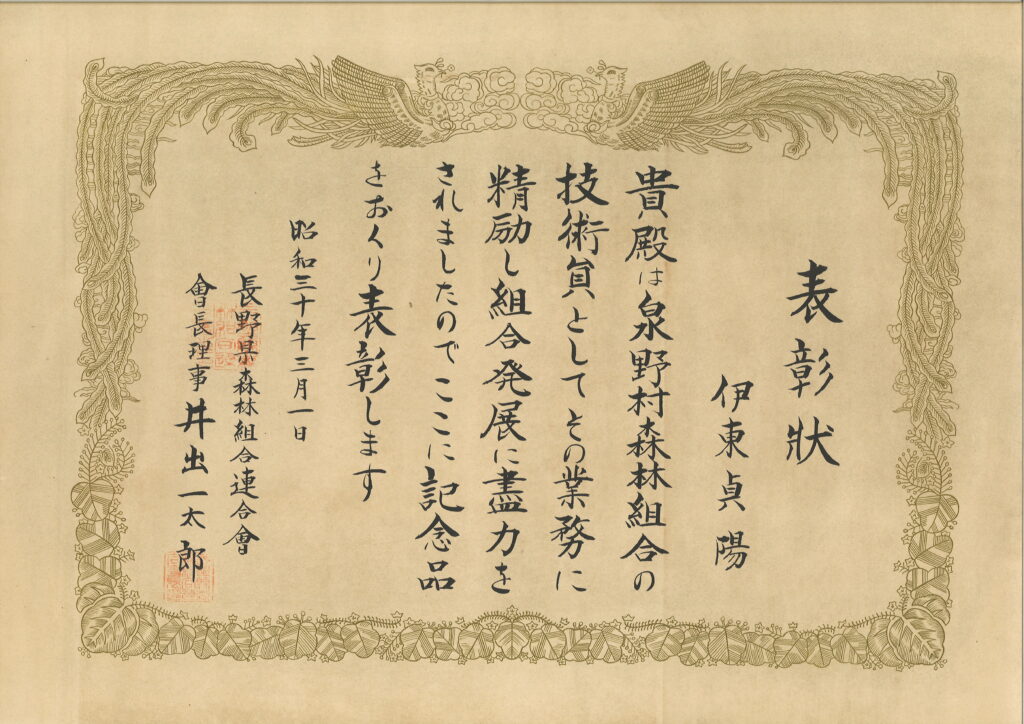 表彰状
伊東貞陽
貴殿は泉野村森林組合の
技術員としてその業務に
精励し組合発展に盡力を
されましたのでここに記念品
をおくり表彰します
昭和三十年三月一日
長野県森林組合連合會
會長理事 井出一太郎